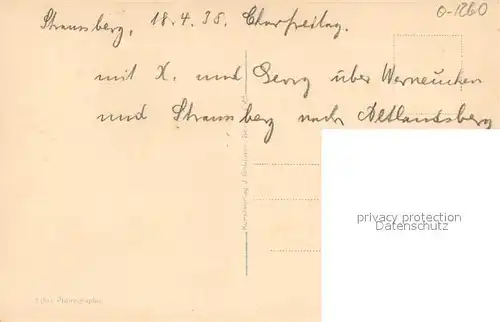 Straussberg, 18.4.35. Charfreitag.
O-1260
mit X. und Georg über Werneuchen
und Straussberg nach Altlandsberg
privacy protection
Datenschutz